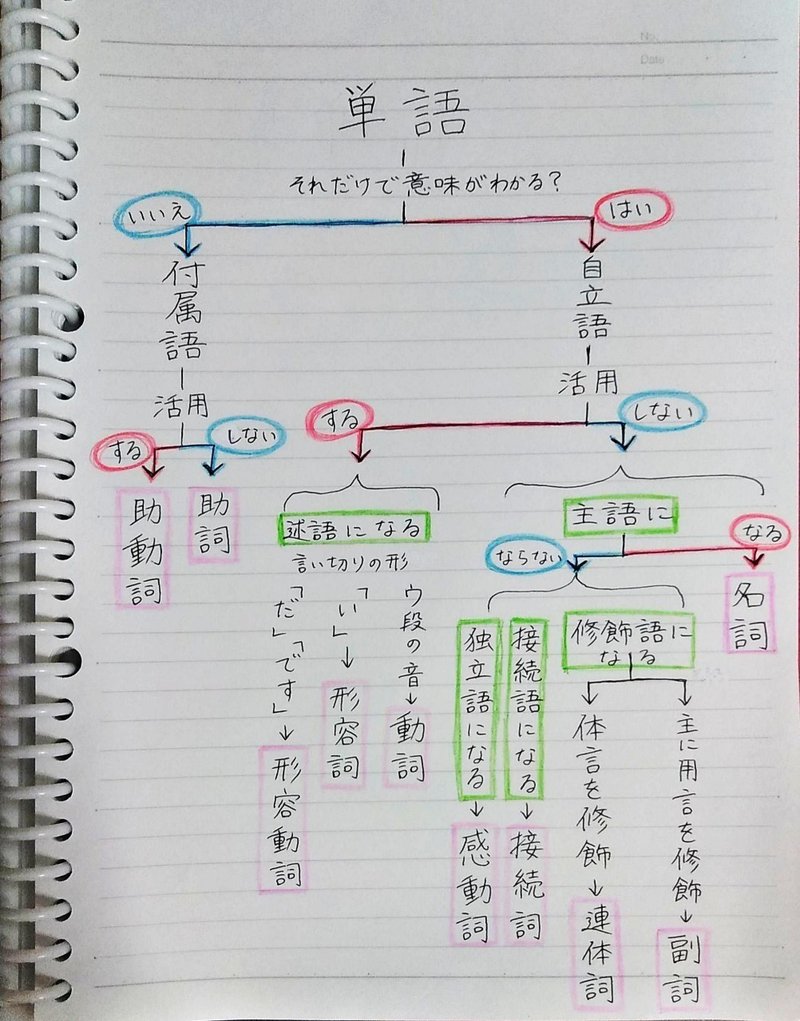 No.
Date
単語
それだけで意味がわかる?
いいえ
はい
付属語
自立語
活用
活用
する
しない
する
しない
助動詞
助詞
述語になる
言い切りの形
ウ段の音→動詞
「い」→形容詞
「だ」「です」→形容動詞
主語に
ならない
なる
名詞
修飾語に
なる
主に用言を修飾→副詞
体言を修飾→連体詞
接続語になる→接続詞
独立語になる→感動詞